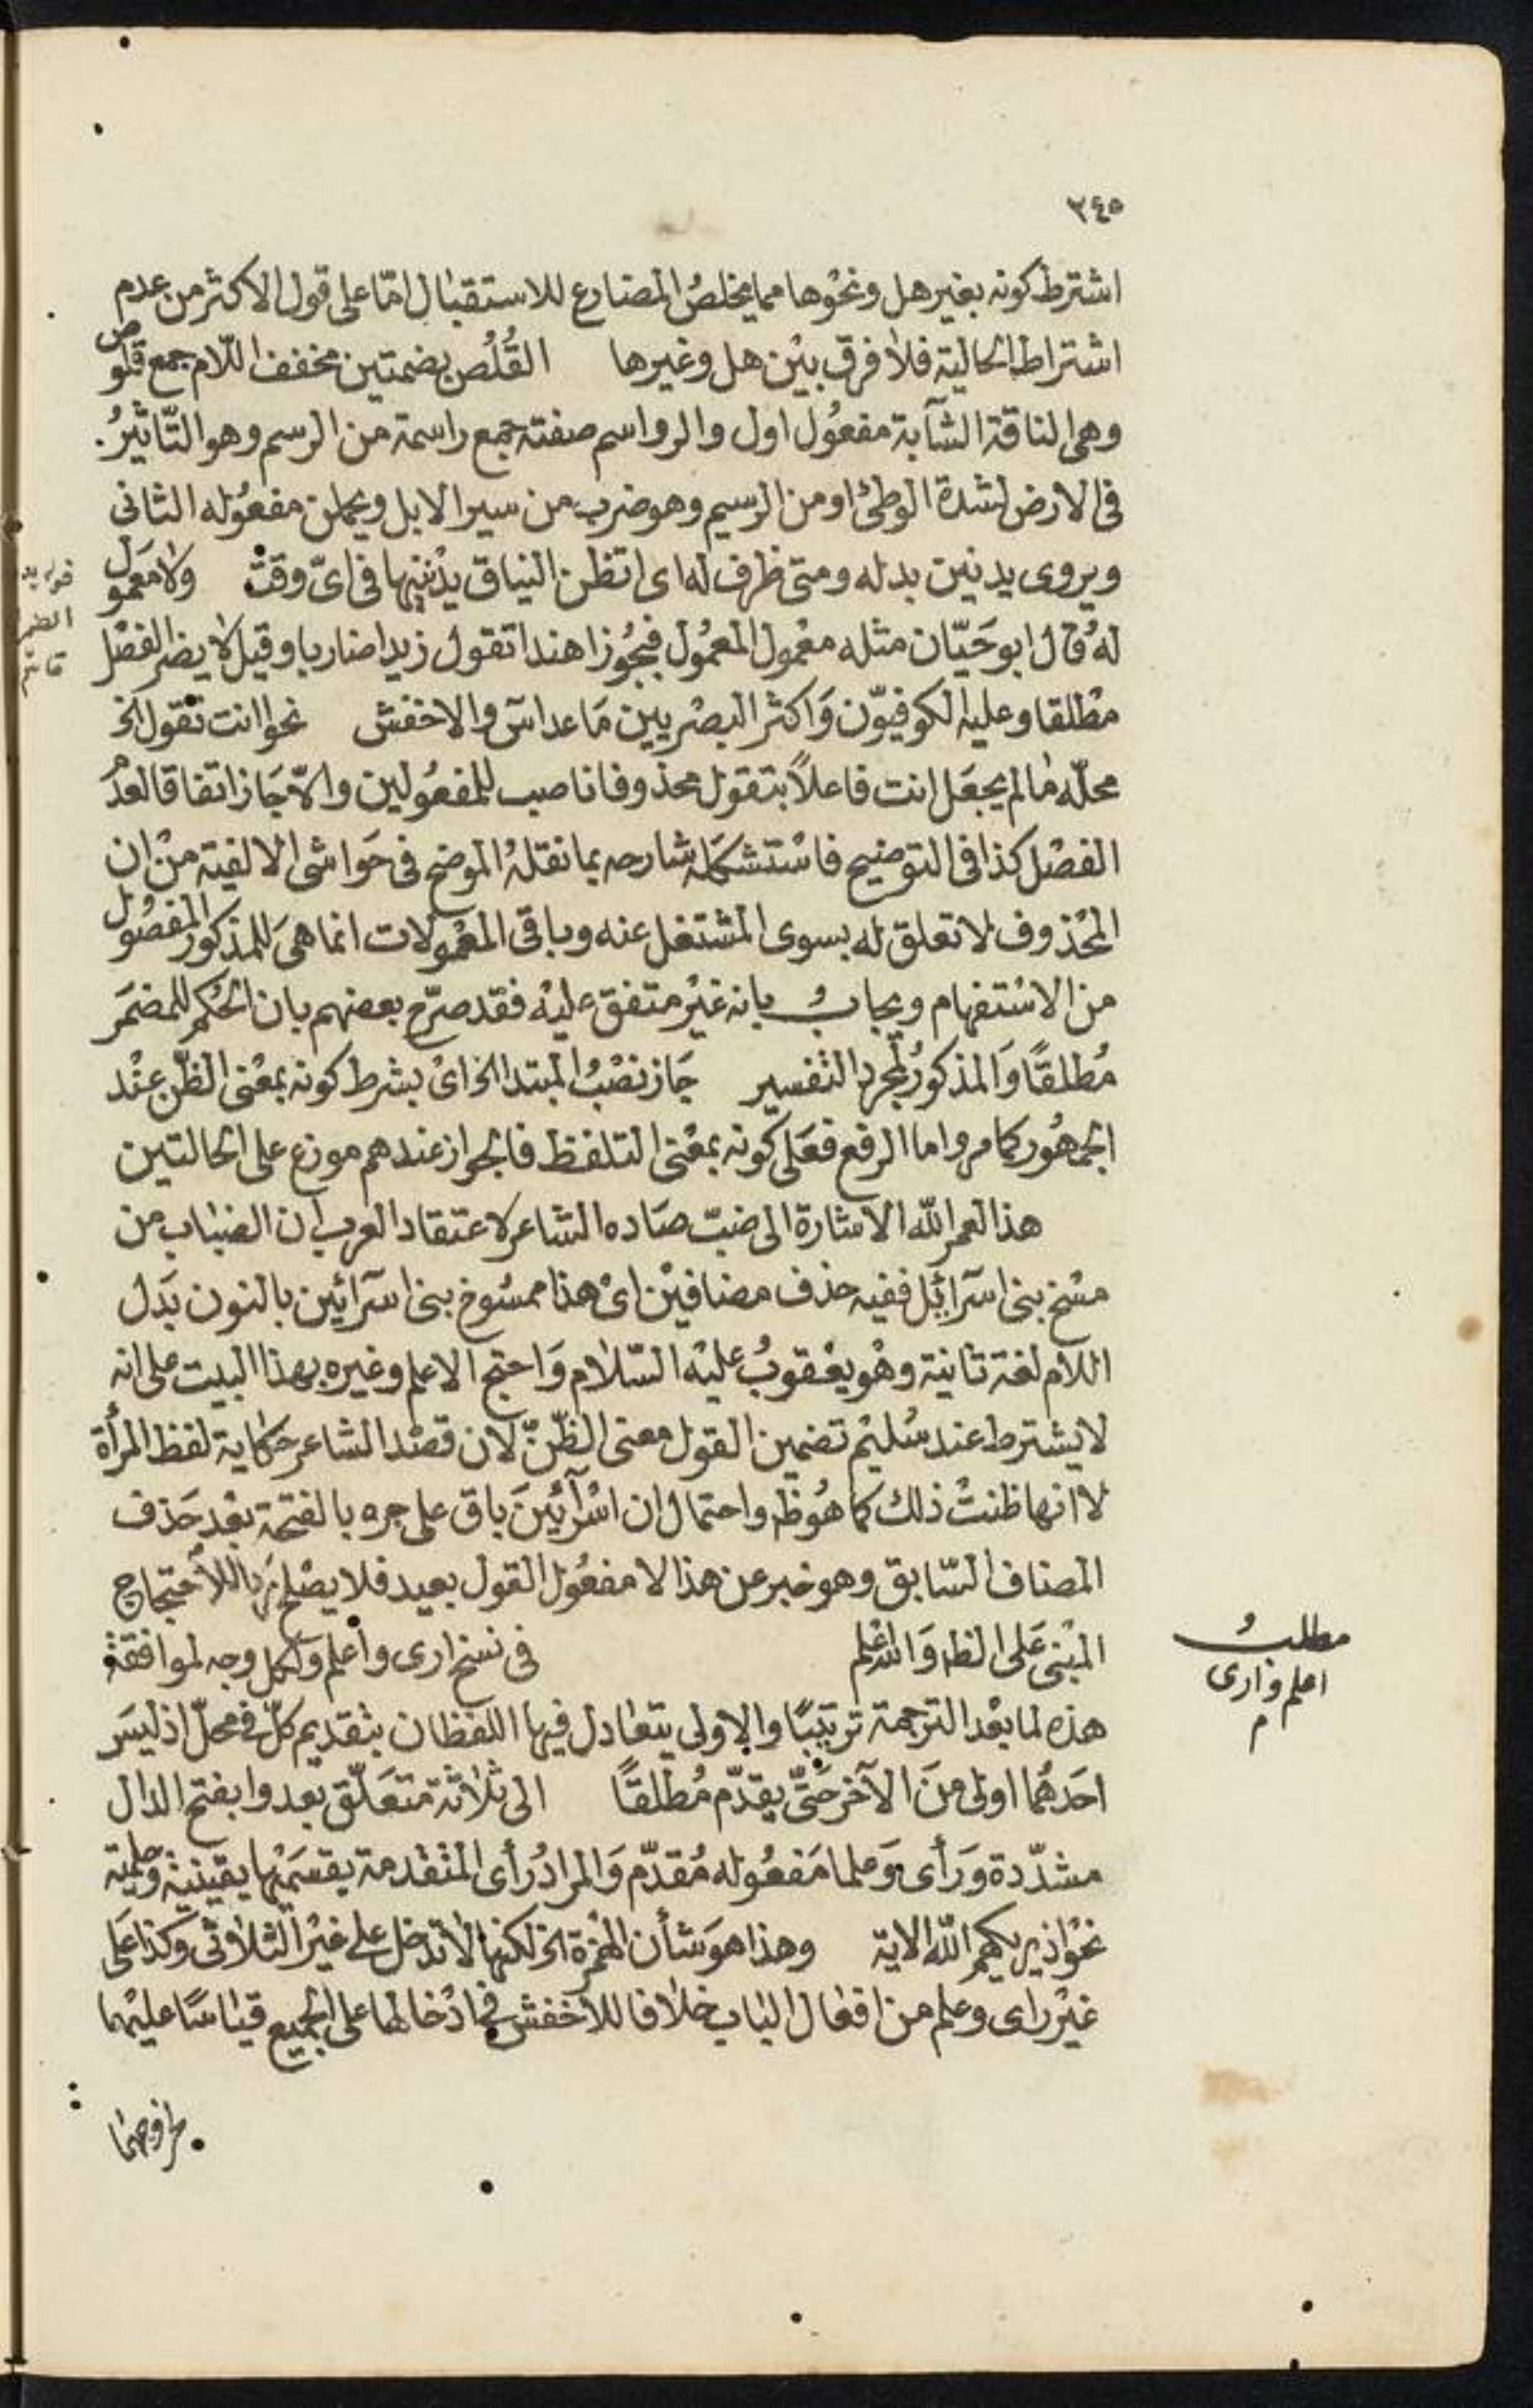 ٣٤٥
اشترط كونه بغير هل ونحوها مما يخلصُ المضارع للاستقبال امّا على قول الاكثر من عدم
اشتراط الحالية فلا فرق بيْن هل وغيرها القُلُص بضمتين مخفف اللّام جمع قلوص
وهى الناقة الشآبة مفعُول اول والرواسم صفته جمع راسمة من الرسم وهو التّاثيرُ
فى الارض لشدة الوطئ او من الرسيم وهو ضرب من سير الابل ويحملن مفعُوله الثانى
ويروى يدنين بدله ومتى ظرف له اى اتظن النياق يدْنينها فى اىّ وقت ولا معمَول
لهُ قال ابو حَيّان مثله معْمول المعمُول فيجُوز اهندا تقول زيدا ضاربا وقيل لا يضر الفصْل
مطْلقا وعليه الكوفيّون وَاكثر البصْريين مَا عدا سٓ والاخفش نحو اانت تقول الخ
محلّه مٰا لم يجعَل انت فاعلاً بتقول محذوفا ناصب للمفعُولين والاّ جَاز اتفاقا لعدَم
الفصْل كذا فى التوضيح فاسْتشكلَه شارحه بما نقلهُ الموضح فى حَواشى الالفية منْ ان
المحْذوف لا تعلق له بسوى المشتغل عنه وباقى المعْمولات انما هىَ للمذكور المفصُول
من الاسْتفهام ويجابُ بانه غيْر متفق عليْه فقد صرّح بعضهم بان الحُكم للمضمَر
مُطلقًا وَالمذكورُ لمجرد التفسير جَاز نصْبُ المبتدا الخ اىْ بشرط كونه بمعْنى الظّن عنْد
الجمهُور كما مر واما الرفع فعَلى كونه بمعْنى التلفظ فالجواز عندهم موزع على الحالتين
هذا لعمر اللّٰه الاشارة الى ضبّ صَاده الشاعر لاعتقاد العرب ان الضباب من
مسْخ بنى اسرآئيل ففيه حذف مضافيْن اىْ هذا ممسُوخ بنى اسرآئين بالنون بَدل
اللام لغة ثانية وهْو يعْقوبُ عليْه السّلام وَاحتج الاعلم وغيره بهذا البيت على انه
لا يشترط عند سُليْم تضمين القول معنى الظّنّ لان قصْد الشاعر حكاية لفظ المرأة
لا انها ظنتْ ذلك كما هُو ظه واحتمال ان اسْرآئينَ باق على جره بالفتحة بعْد حَذف
المضاف السّابق وهو خبر عن هذا لا مفعُول القول بعيد فلا يصْلح للاحتجاج
المبْنى عَلى الظه وَاللّٰه اعْلم فى نسخ ارى وأعلم ولكل وجه لموافقة
هذه لما بعْد الترجمة ترتيبًا والاولى يتعَادل فيها اللفظان بتقديم كلّ فى محلّ اذ ليسَ
احَدهُما اولى منَ الآخر حَتّى يقدّم مُطلقًا الى ثلاثة متعَلّق بعدوا بفتح الدال
مشدّدة وَرَأى وَعلما مَفعُوله مُقدّم وَالمرادُ رأى المتقدمة بقسمَيْها يقينية وحلمية
نحْو اذ يريكهم اللّٰه الاية وهذا هوَ شأن الهمْزة الخ لكنها لا تدخل على غيْر الثلاثى وكذا عَلى
غيْر راى وعلم من افعَال البَاب خلاَفا للأخفش فى ادْخالها على الجميع قيَاسًا عليْهما
مطلبُ
اعلم وارى
م